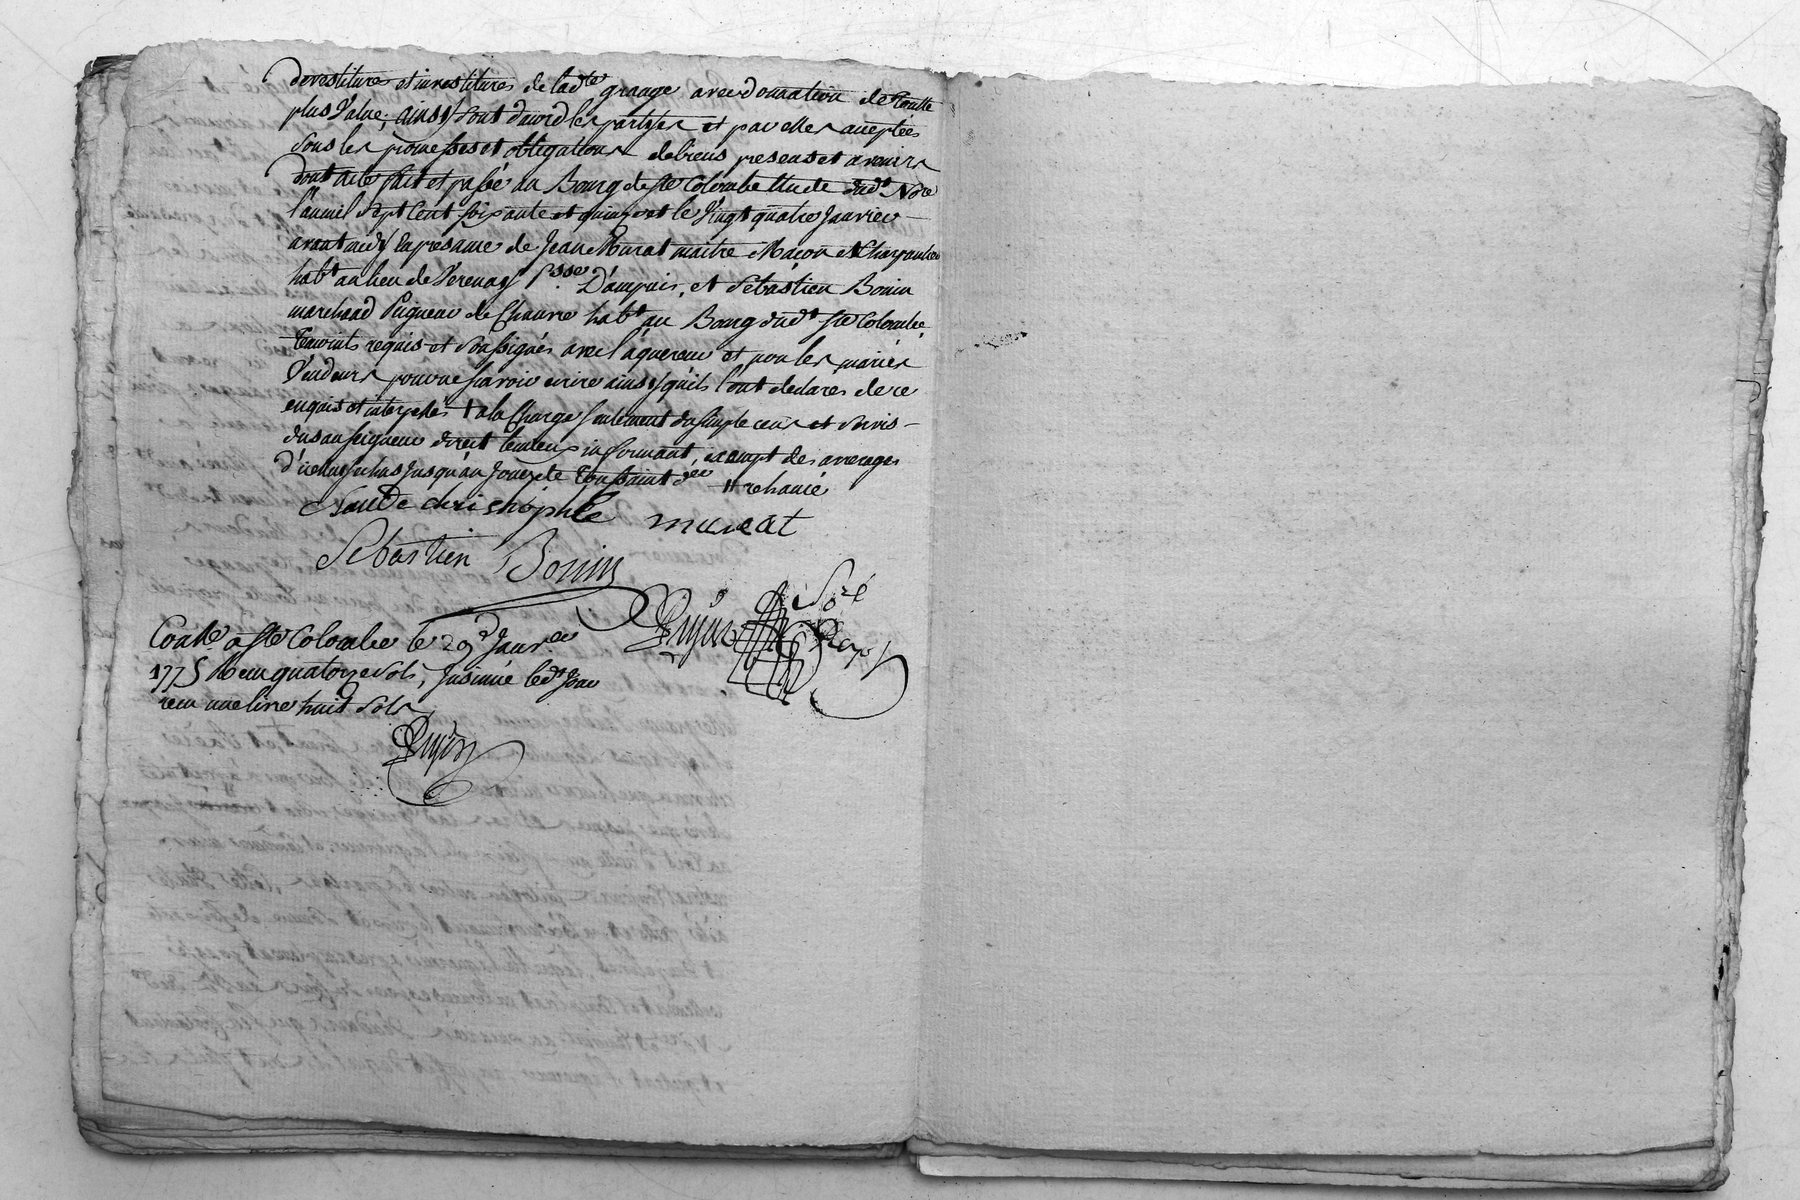 devestitures et investitures de lad.te grange avec donation de toutte
plus value; ainsy sont d'acord les partyes et par elles aceptées
sous les promesses et obligations de biens presens et avenirs
dont acte fait et passé au Bourg de Ste Colombe Etude dud.t Nore
l'an mil sept cent soixante et quinze et le vingt quatre Janvier
avant midy en presance de Jean Murat maitre Maçon et Charpantier
hab.t au lieu de Verenay p.sse D'ampuis, et Sébastien Bonin
marchand Peigneur de Chanvre hab.t au Bourg dud.t Ste Colombe,
temoints requis et soussignés avec l'aquereur et non les mariés
Vendeurs pour ne scavoir ecrire ainsy qu'ils l'ont declarés de ce
enquis et interpellés + a la Charge seulement du simple cens et servis
du au seigneur direct
d'iceux jusqu'au jour de toussaint d.er
Claude christophle murat
Sébastien Bonin
Dujus Rey
Conlle a Ste Colombe le 29 Janv.er
1775 Reçu quatorze sols, Insinué led.t Jour
reçu une livre huit sols
Dujus